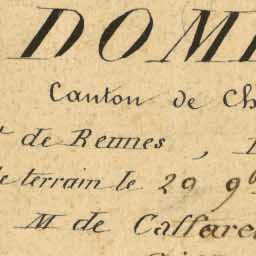 DOM
Canton de Ch
de Rennes ,
le terrain le 29 9b
M de Caffare